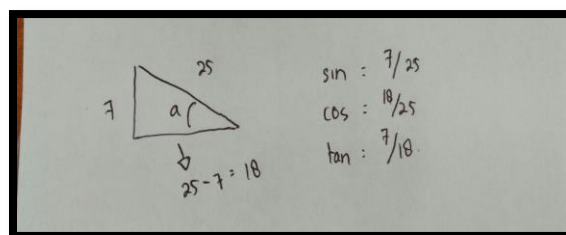 25
7
a
25-7=18
sin : 7/25
cos : 18/25
tan : 7/18.